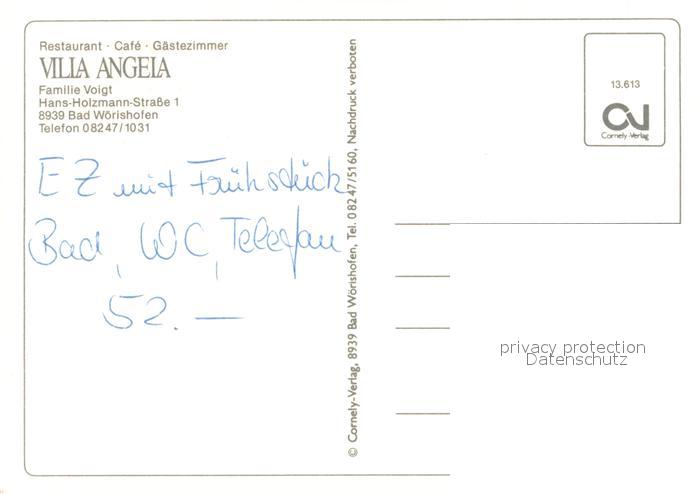 Restaurant · Café · Gästezimmer
VILLA ANGELA
Familie Voigt
Hans-Holzmann-Straße 1
8939 Bad Wörishofen
Telefon 08247/1031
EZ mit Frühstück
Bad, WC, Telefon
52.—
© Cornely-Verlag, 8939 Bad Wörishofen, Tel. 08247/5160, Nachdruck verboten
13.613
CV
Cornely-Verlag
privacy protection
Datenschutz